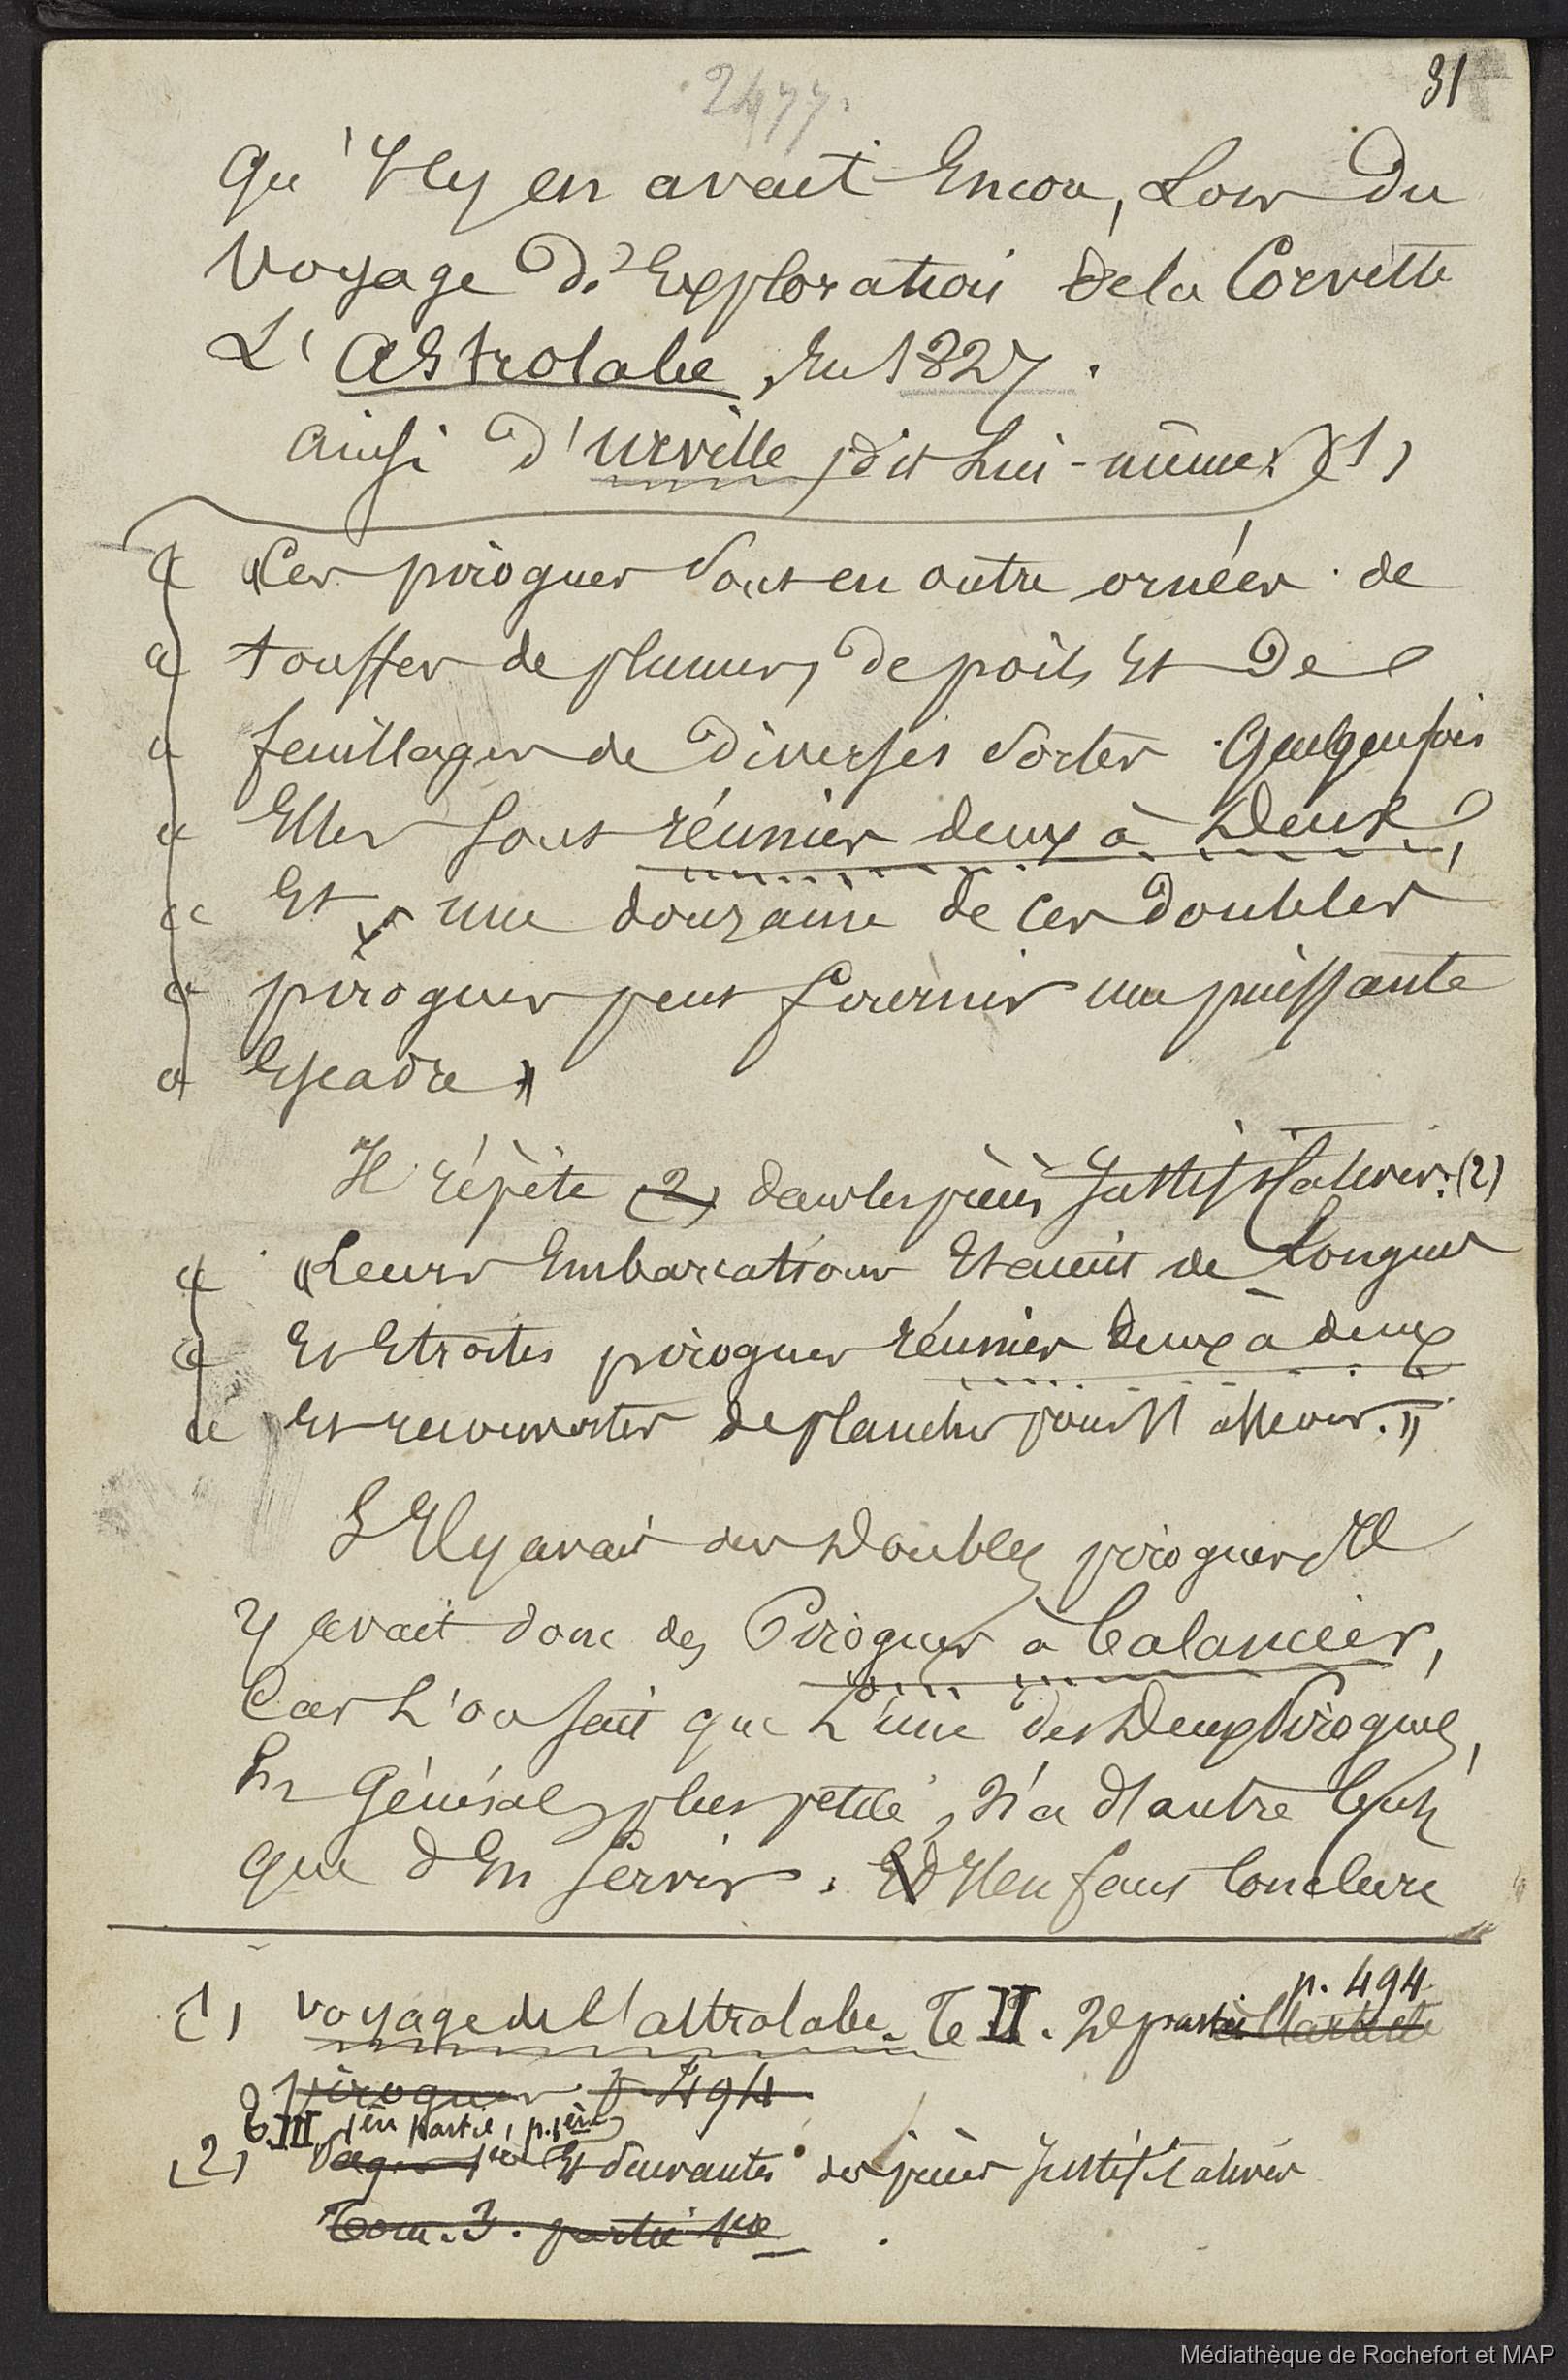 2477.
31
qu'Il y en avait Encore, Lors Du
Voyage D'Exploration de la Corvette
L'Astrolabe, En 1827.
ainsi D'urville, dit Lui-même: (1)
« « Ces pirogues sont en outre ornées de
« touffes de plumes, De poils Et De
« feuillages de Diverses Sortes. Quelquefois
« Elles sont réunies deux à Deux,
« Et une douzaine de ces Doubles
« pirogues peut fournir une puissante
« Escadre »
Il répète (2) dans les pièces Justificatives: (2)
« « Leurs Embarcations Etaient de Longues
« Et Etroites pirogues réunies deux à deux
« Et recouvertes de planches pour s'asseoir. »
S'Il y avait des Doubles pirogues Il
y avait donc des Pirogues à balancier,
Car L'on sait que L'une des Deux Pirogues,
En Général plus petite, N'a d'autre but
que d'En servir. Il en faut Conclure
(1) voyage de l'astrolabe. Te II. 2e partie p. 494
pirogues p. 494
T. III 1ère partie, p. 1ère
(2) Page 1re Et Suivantes des pièces Justificatives
Tom. 3. partie 1re
Médiathèque de Rochefort et MAP